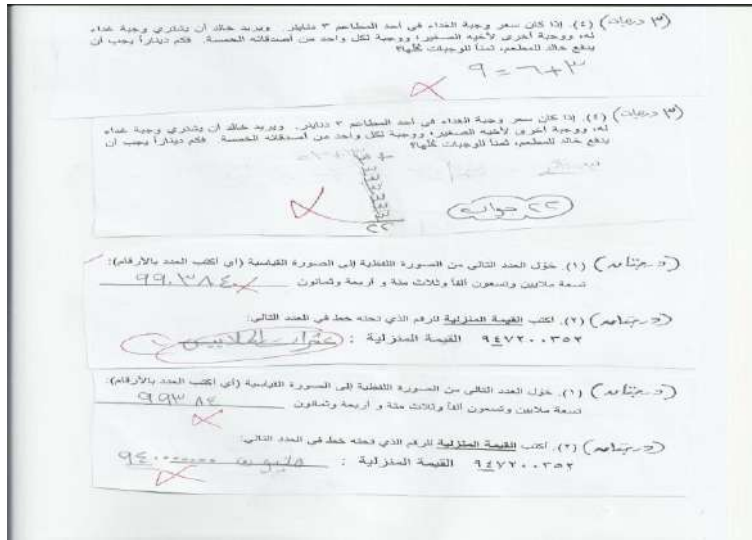 (٣ درجات) (٤). إذا كان سعر وجبة الغداء في أحد المطاعم ٣ دنانير. ويريد خالد أن يشتري وجبة غداء
له، ووجبة أخرى لأخيه الصغير، ووجبة لكل واحد من أصدقائه الخمسة. فكم ديناراً يجب أن
يدفع خالد للمطعم، ثمناً للوجبات كلها؟
٣+٦=٩
(٣ درجات) (٤). إذا كان سعر وجبة الغداء في أحد المطاعم ٣ دنانير. ويريد خالد أن يشتري وجبة غداء
له، ووجبة أخرى لأخيه الصغير، ووجبة لكل واحد من أصدقائه الخمسة. فكم ديناراً يجب أن
يدفع خالد للمطعم، ثمناً للوجبات كلها؟
٢٢
٢٢ جواب
(درجتان) (١). حوّل العدد التالي من الصورة اللفظية إلى الصورة القياسية (أي أكتب العدد بالأرقام):
تسعة ملايين وتسعون ألفاً وثلاث مئة و أربعة وثمانون ٩٩٠٣٨٤٠
(درجتان) (٢). أكتب القيمة المنزلية للرقم الذي تحته خط في العدد التالي:
٩٤٧٢٠٠٣٥٢ القيمة المنزلية : عشرات الملايين
(درجتان) (١). حوّل العدد التالي من الصورة اللفظية إلى الصورة القياسية (أي أكتب العدد بالأرقام):
تسعة ملايين وتسعون ألفاً وثلاث مئة و أربعة وثمانون ٩٩٣٨٤
(درجتان) (٢). أكتب القيمة المنزلية للرقم الذي تحته خط في العدد التالي:
٩٤٧٢٠٠٣٥٢ القيمة المنزلية : مليون